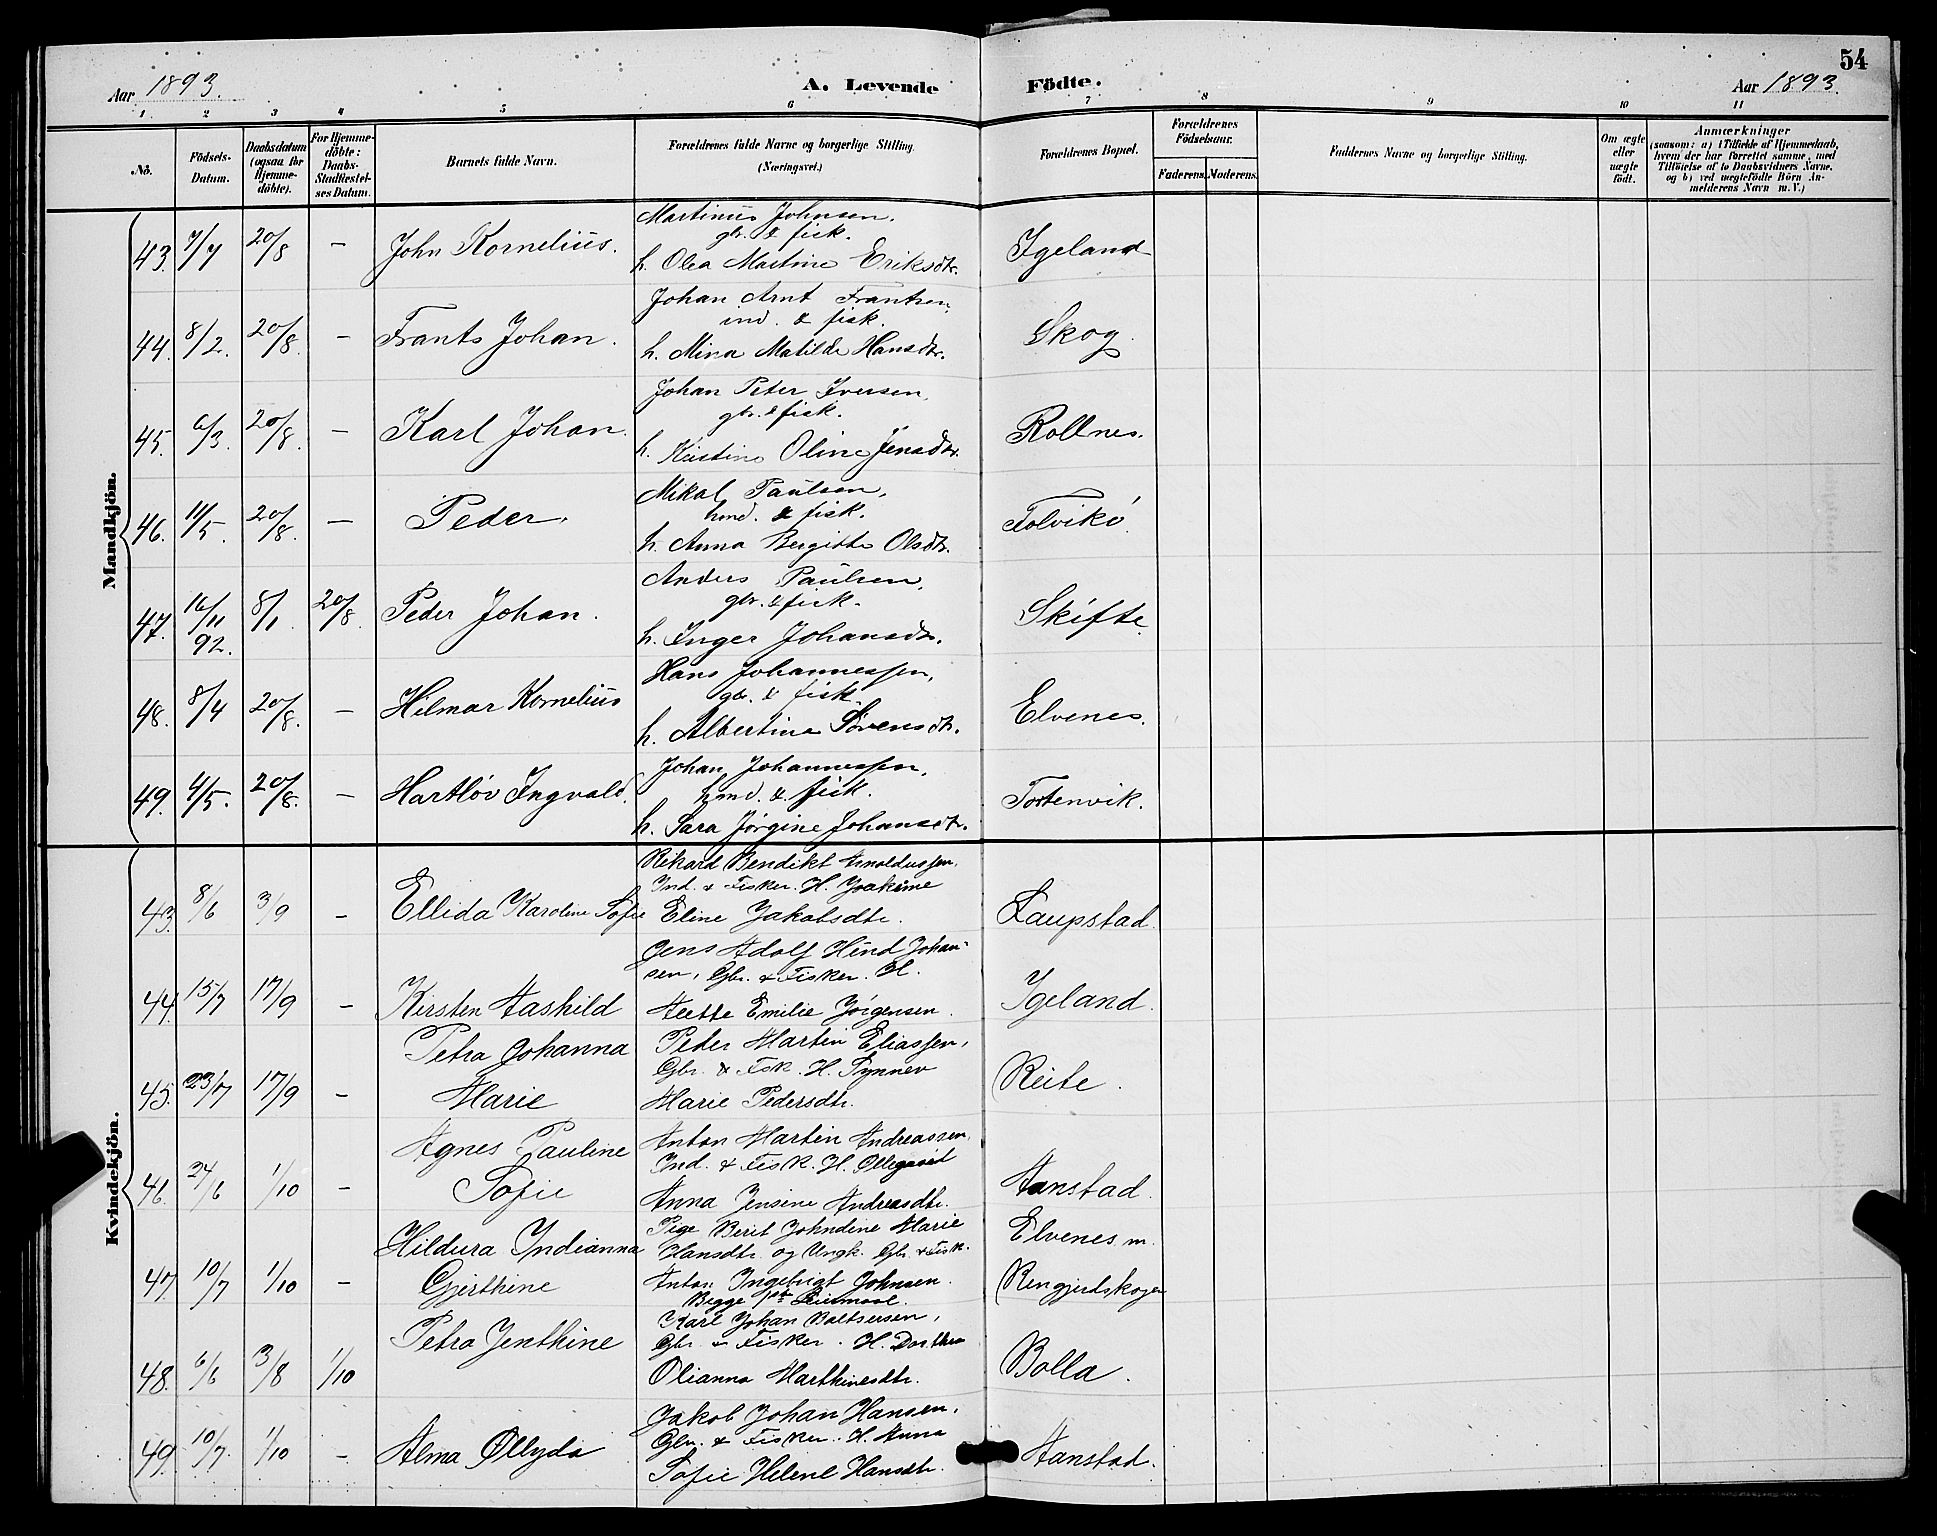 54
Aar 1893. A. Levende Födte. Aar 1893.
1 2 3 4 5 6 7 8 9 10 11
No.
Födsels-Datum.
Daabsdatum (ogsaa for Hjemme-döbte).
For Hjemme-döbte: Daabs-Stadfæstel-ses Datum.
Barnets fulde Navn.
Forældrenes fulde Navne og borgerlige Stilling.
(Næringsvei.)
Forældrenes Bopæl.
Forældrenes Födselsaar.
Faderens. Moderens.
Faddernes Navne og borgerlige Stilling.
Om ægte eller uægte födt.
Anmærkninger
(saasom: a) i Tilfælde af Hjemmedaab,
hvem der har forrettet samme, med
Tilföielse af to Daabsvidners Navne,
og b) ved uægtefödte Börn An-
melderens Navn m. V.)
Mandkjön.
Martinus Johnsen.
gbr. & fisk.
43. 7/7 20/8 – John Kornelius. h. Olea Martine Eriksdtr. Igeland
Johan Arnt Frantsen,
ind. & fisk.
44. 8/2. 20/8. – Frants Johan. h. Mina Matilde Hansdtr. Skog.
Johan Peter Iversen,
gbr. & fisk.
45. 6/3. 20/8. – Karl Johan. h. Kristine Oline Jensdtr. Rollnes.
Mikal Paulsen,
hmd. & fisk.
46. 11/5. 20/8. – Peder. h. Anna Bergitte Olsdtr. Tolvikö.
Anders Paulsen,
gbr. & fisk.
47. 16/11 92. 8/1. 20/8. Peder Johan. h. Inger Johansdtr. Skifte.
Hans Johannessen,
gbr. & fisk.
48. 8/4 20/8. – Hilmar Kornelius h. Albertina Sörensdtr. Elvenes.
Johan Johannessen,
hmd. & fisk.
49. 4/5. 20/8. – Hartlöv Ingvald. h. Sara Jørgine Johansdtr. Tortenvik.
Kvindekjön.
Rikard Bendikt Arnoldussen.
Ind. & Fisker. H. Joakime
43. 8/6 3/9 – Ellida Karoline Sofie Eline Jakobsdtr. Laupstad.
Jens Adolf Hind Johan-
sen, Gbr. & Fisker. H.
44. 15/7 17/9 – Kirsten Aashild Aette Emilie Jörgensen. Igeland.
Petra Johanna Peder Martin Eliassen,
Gbr. & Fsk. H. Synnev
45. 23/7 17/9 – Marie Marie Pedersdtr. Reite.
Agnes Pauline Anton Martin Andreassen,
Ind. & Fisk. H. Ollegaard
46. 24/6 1/10 – Sofie Anna Jensine Andreasdtr. Aanstad.
Pige Berit Johndine Marie
Hildura Indianna Hansdtr. og Ungk. Gbr. & Fisk. Elvenes m.
47. 10/7 1/10 – Gjerthine Anton Ingebrigt Johnsen. Rengjerdskogen
Begge 1ste Leiermaal.
Karl Johan Baltsersen,
Petra Jenthine Gbr. & Fisker. H. Dorthea
48. 6/6 3/8 1/10 Olianna Marthinesdtr. Bolla.
Jakob Johan Hansen,
Gbr. & Fisker. H. Anna
49. 10/7. 1/10 – Alma Øllyda Sofie Helene Hansdtr. Aanstad.